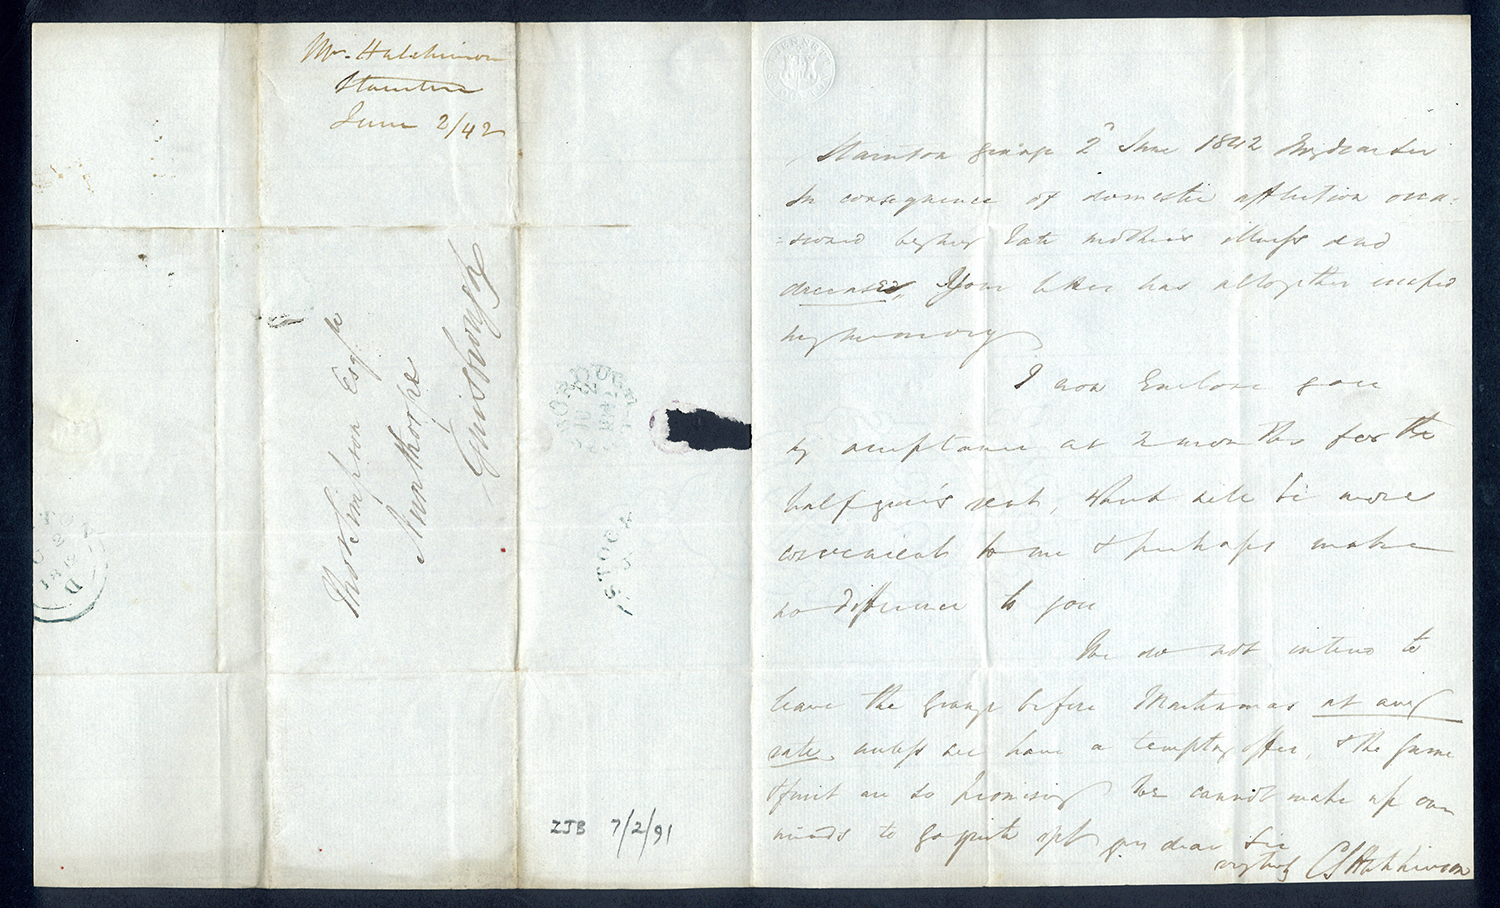 Mr. Hutchinson
Stainton
June 2/42
Thos Simpson Esqre
Nunthorpe
Guisborough
STOCK
ZJB 7/2/91
Stainton Grange 2d June 1842 My dear Sir
In consequence of domestic affliction occa-
-sioned by my late mother's illness and
decease, Your letter has altogether escaped
my memory
I now Enclose you
my acceptance at 2 months for the
half year's rent, which will be more
convenient to me & perhaps make
no difference to you
We do not intend to
leave the Grange before Martinmas at any
rate unless we have a tempting offer, & the game
& fruit are so promising We cannot make up our
minds to go quite yet yrs dear Sir
very truly C S Hutchinson